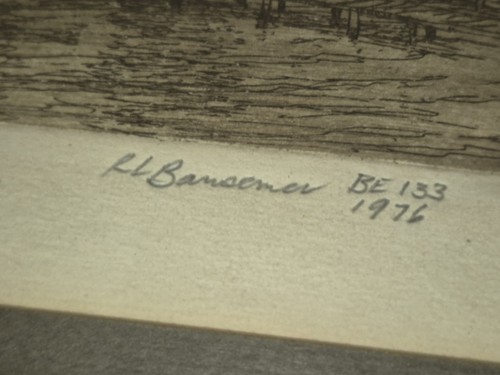 RL Bansemer BE 133
1976